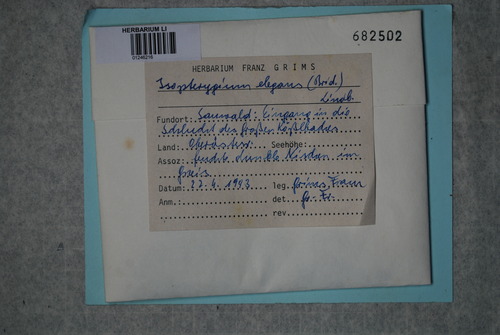 HERBARIUM LI
682502
HERBARIUM FRANZ GRIMS
Isopterygium elegans (Brid.)
Lindb.
Fundort: Sauwald: Eingang in die
Schlucht des großen Kößlbaches
Land: Oberösterr. Seehöhe:
Assoz: feucht dunkle Nischen im
Gneis
Datum: 22.4.1993 leg. Grims Franz
Anm.: det. Gr. Fr.
rev.